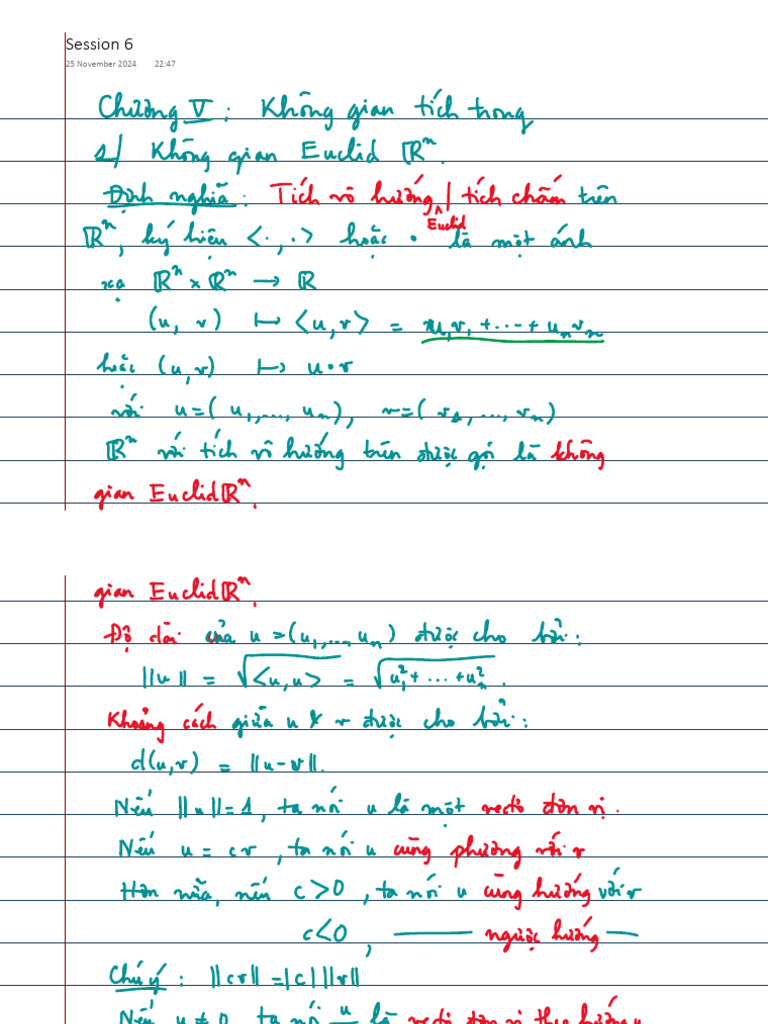 Session 6
25 November 2024 22:47
Chương V : Không gian tích trong
1/ Không gian Euclid ℝⁿ.
Định nghĩa : Tích vô hướng | tích chấm trên
Euclid
ℝⁿ, ký hiệu <·,·> hoặc • là một ánh
xạ ℝⁿ × ℝⁿ → ℝ
(u, v) ↦ <u,v> = u₁v₁ + ··· + uₙvₙ
hoặc (u,v) ↦ u•v
với u=(u₁,..., uₙ), v=(v₁,..., vₙ)
ℝⁿ với tích vô hướng trên được gọi là không
gian Euclid ℝⁿ.
gian Euclid ℝⁿ.
Độ dài của u =(u₁,..., uₙ) được cho bởi :
||u|| = √<u,u> = √u₁²+ ··· +uₙ² .
Khoảng cách giữa u & v được cho bởi :
d(u,v) = ||u-v||.
Nếu ||u||=1, ta nói u là một vectơ đơn vị.
Nếu u = cv , ta nói u cùng phương với v
Hơn nữa, nếu c>0 , ta nói u cùng hướng với v
c<0 , —— ngược hướng —
Chú ý : ||cv|| =|c| ||v||
Nếu u ≠ 0, ta nói u là vectơ đơn vị theo hướng u